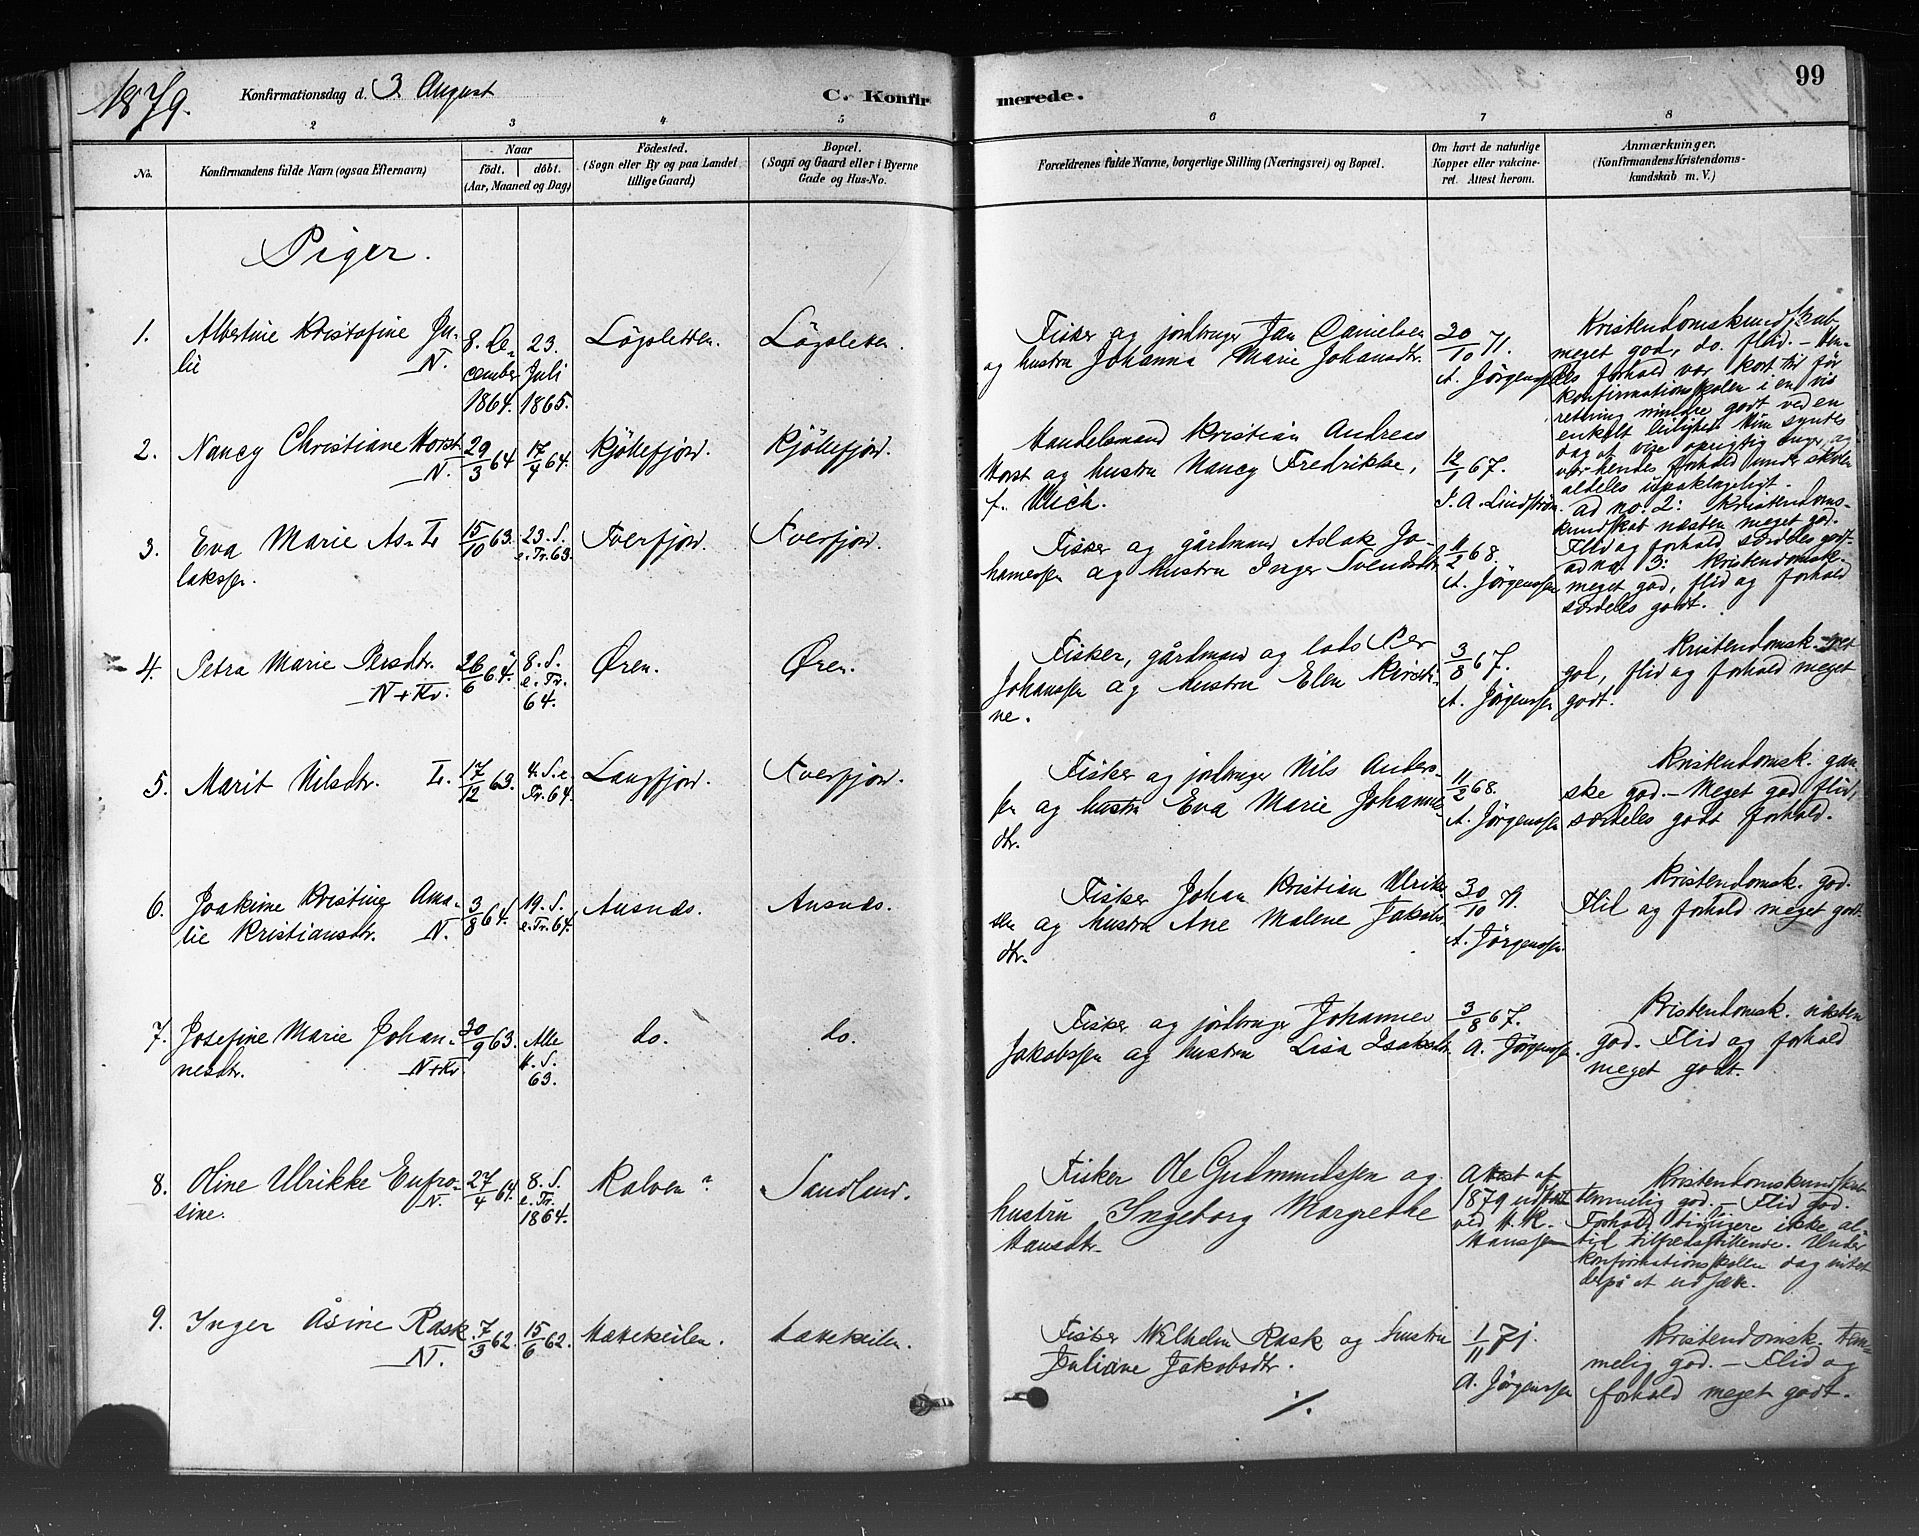 1879.
Konfirmationsdag d. 3. August
C. Konfir merede.
99
2 3 4 5 6 7 8
No.
Konfirmandens fulde Navn (ogsaa Efternavn)
Naar
födt. döbt.
(Aar, Maaned og Dag)
Födested.
(Sogn eller By og paa Landet
tillige Gaard)
Bopæl.
(Sogn og Gaard eller i Byerne
Gade og Hus-No.
Forældrenes fulde Navne, borgerlige Stilling (Næringsvei) og Bopæl.
Om havt de naturlige
Kopper eller vakcine-
ret. Attest herom.
Anmærkninger.
(Konfirmandens Kristendoms-
kundskab m. V.)
Piger.
1. Albertine Kristofine Ju-
lie N.
8. De-
cember
1864.
23.
Juli
1865.
Lögsletten.
Lögsletten.
Fisker og jordbruger Jan Danielsen
og hustru Johanna Marie Johansdtr.
20/10 71.
A. Jörgenssen
Kristendomskundskab
meget god, do. flid. – Hen-
des forhold var kort tid för
konfirmationsskolen i en vis
retning mindre godt ved en
enkelt leilighed. Hun syntes
dog at vise oprigtig anger, og
var hendes forhold under skolen
aldeles upåklageligt.
2. Nancy Christiane Horst
N.
29/3 64
17/4 64.
Kjöllefjord.
Kjöllefjord.
Handelsmand Kristian Andreas
Horst og hustru Nancy Fredrikke,
f. Uich.
12/1 67.
J. A. Lindström.
ad no. 2: Kristendoms-
kundskab næsten meget god.
Flid og forhold særdeles godt.
3. Eva Marie As- L
lakssen.
15/10 63.
23. S.
e. Tr. 63.
Tverfjord.
Tverfjord.
Fisker og gårdmand Aslak Jo-
hannessen og hustru Inger Svendsdtr.
11/2 68.
A. Jörgenssen
ad no. 3: Kristendomsk.
meget god, flid og forhold
særdeles godt.
4. Petra Marie Persdtr.
N + Kv.
26/6 64.
8. S.
e. Tr.
64.
Øren.
Øren.
Fisker, gårdmand og lods Per
Johanssen og hustru Elen Kirsti-
ne.
3/8 67.
A. Jörgenssen
Kristendomsk. meget
god, flid og forhold meget
godt.
5. Marit Nilsdtr. L.
17/12 63.
4. S. e.
Tr. 64.
Langfjord.
Tverfjord.
Fisker og jordbruger Nils Anders-
sen og hustru Eva Marie Johannes-
dtr.
11/2 68.
A. Jörgenssen
Kristendomsk. gan-
ske god. – Meget god flid,
særdeles godt forhold.
6. Joakime Kristine Ama-
lie Kristiansdtr. N.
3/8 64.
19. S.
e. Tr. 64.
Ausnæs.
Ausnæs.
Fisker Johan Kristian Ulrik-
sen og hustru Ane Malene Jakobs-
dtr.
30/10 71.
A. Jörgenssen.
Kristendomsk. god.
Flid og forhold meget godt.
7. Josefine Marie Johan-
nesdtr. N + Kv
30/9 63.
Alle
H. S.
63.
do.
do.
Fisker og jordbruger Johannes
Jakobssen og hustru Lisa Isaksdtr.
3/8 67.
A. Jörgenssen.
Kristendomsk. næsten
god. Flid og forhold
meget godt.
8. Oline Ulrikke Eufro-
sine. N.
27/4 64.
8. S.
e. Tr.
1864.
Kalven?
Sandland.
Fisker Ole Gudmundssen og
hustru Ingeborg Margrethe
Hansdtr.
Attest af
1879 udstedt
ved H. K.
Hanssen
Kristendomskundskab
temmelig god. – Flid god.
Forhold tidligere ikke al-
tid tilfredsstillende. Under
konfirmationsskolen dog intet
derpå at udsætte.
9. Inger Åsine Rask
N.
7/3 62.
15/6 62.
Hakekeilen.
Hakekeilen.
Fisker Wilhelm Rask og hustru
Juliane Jakobsdtr.
1/11 71.
A. Jörgenssen
Kristendomsk. tem-
melig god. – Flid og
forhold meget godt.
./.